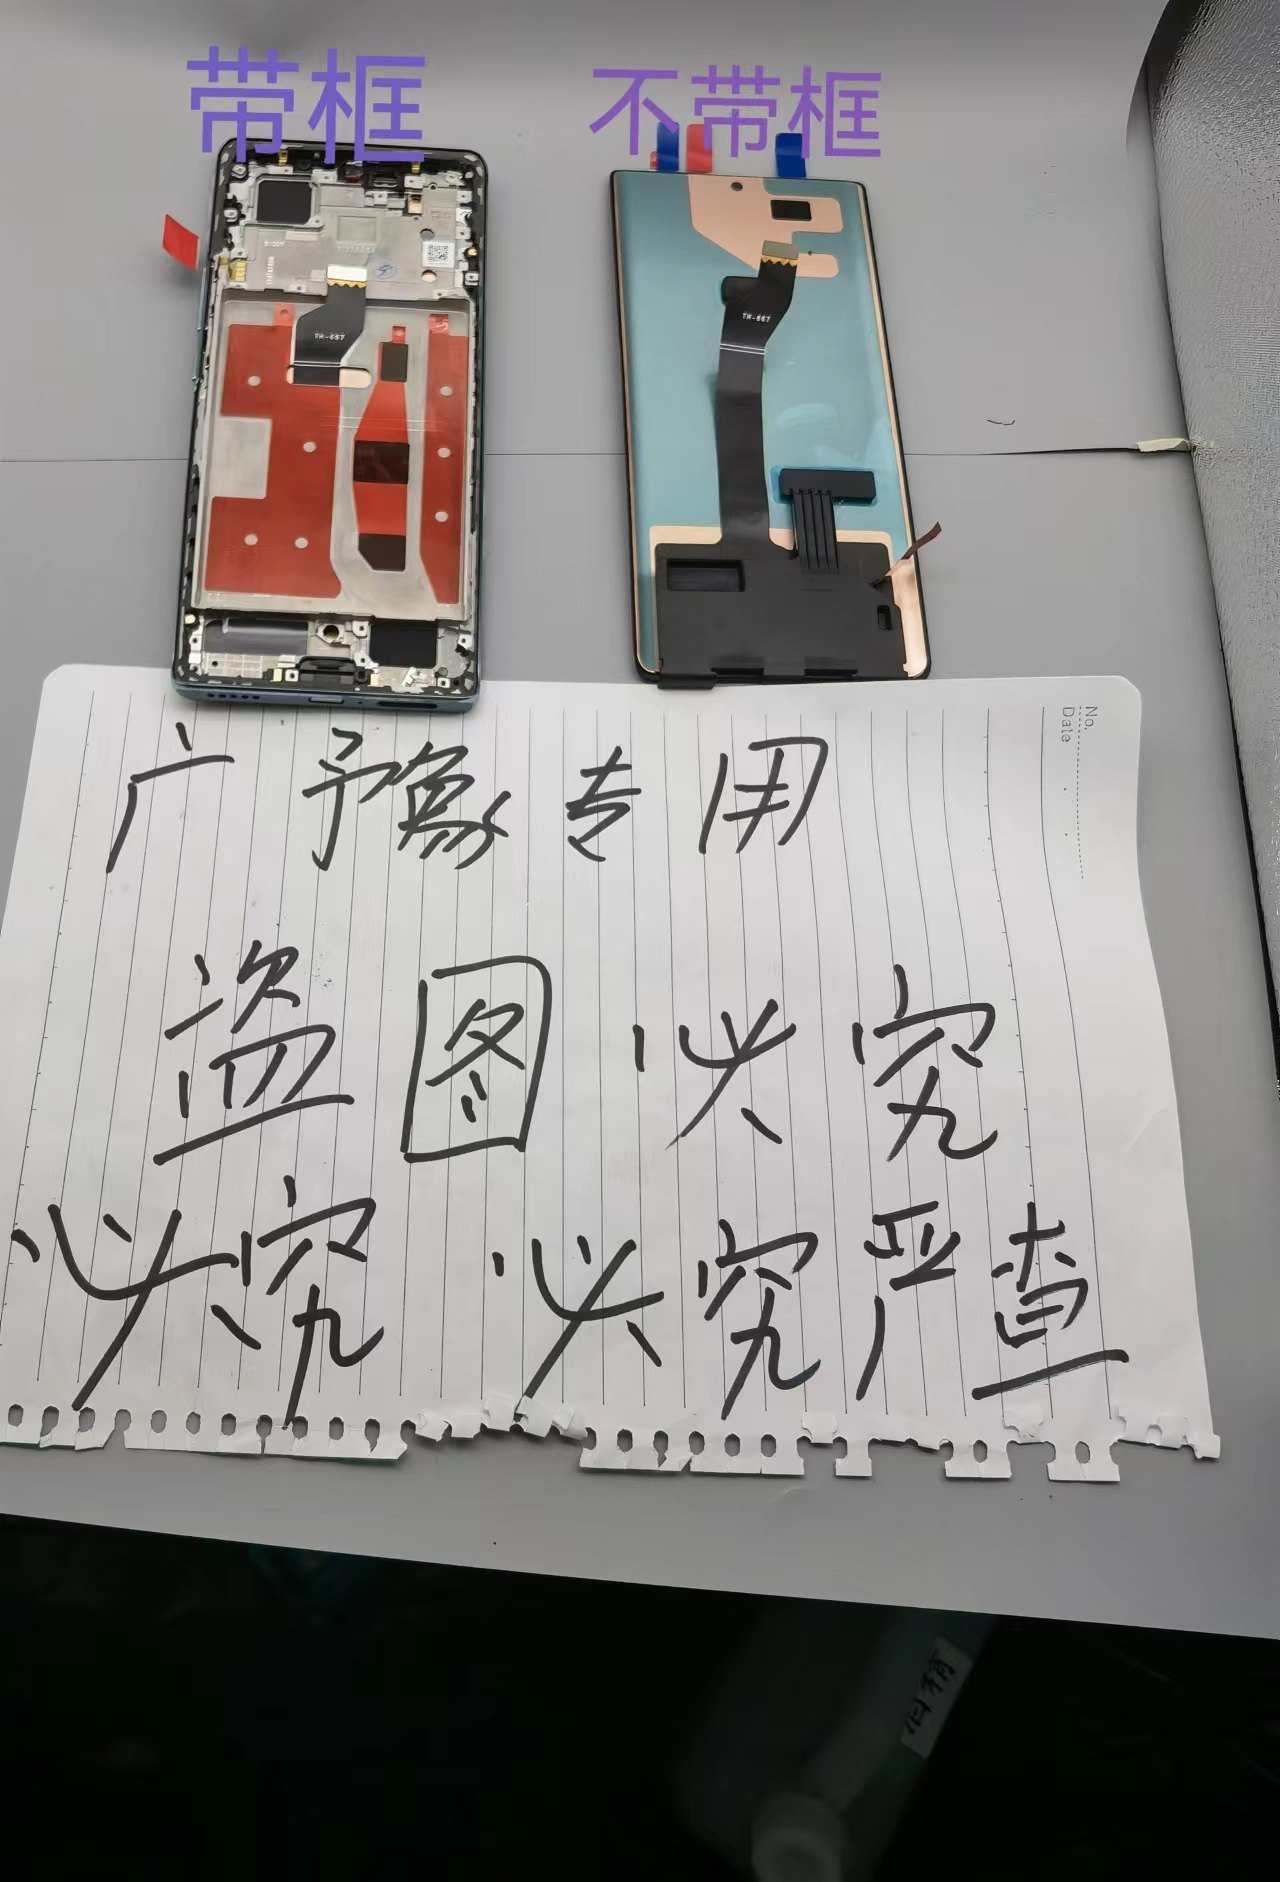 带框 不带框
TR-667
TR-667
No.
Date
广予象专用
盗图必究
必究必究严查